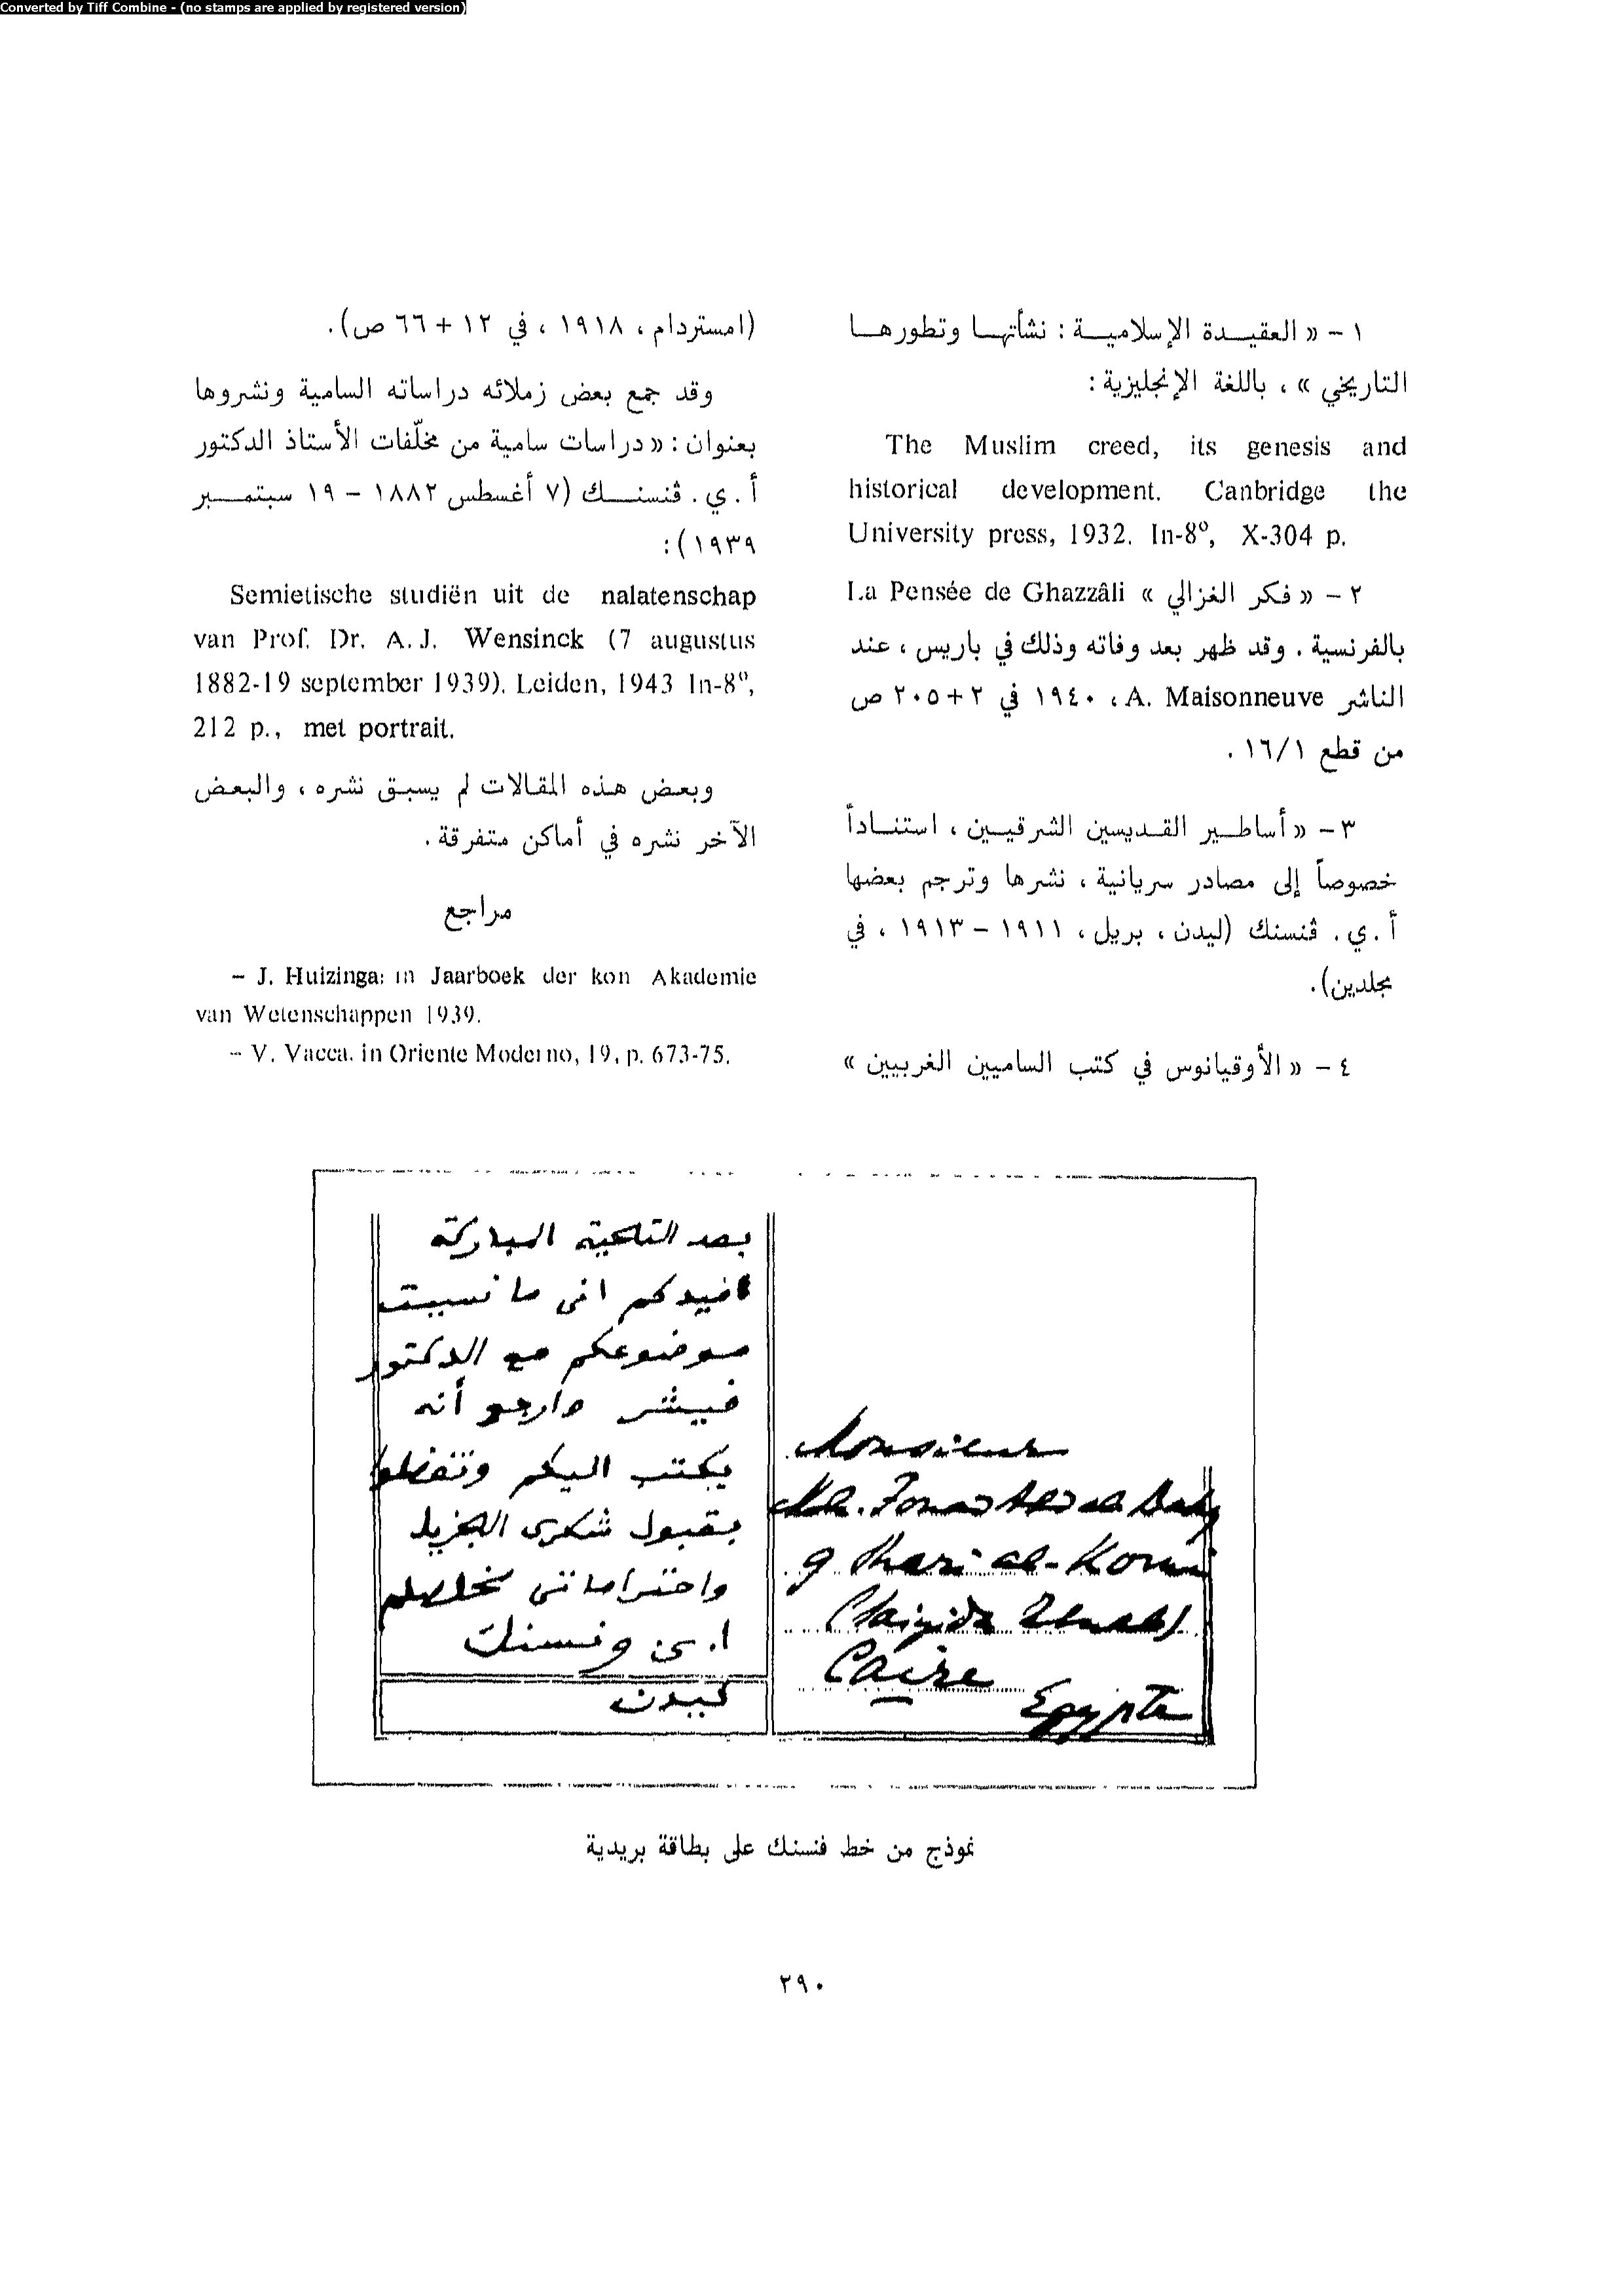 Converted by Tiff Combine - (no stamps are applied by registered version)
١ – « العقيدة الإسلامية : نشأتها وتطورها
التاريخي » ، باللغة الإنجليزية :
The Muslim creed, its genesis and
historical development. Canbridge the
University press, 1932. In-8º, X-304 p.
٢ – « فكر الغزالي » La Pensée de Ghazzâli
بالفرنسية . وقد ظهر بعد وفاته وذلك في باريس ، عند
الناشر A. Maisonneuve ، ١٩٤٠ في ٢+٢٠٥ ص
من قطع ١٦/١ .
٣ – « أساطير القديسين الشرقيين ، استناداً
خصوصاً إلى مصادر سريانية ، نشرها وترجم بعضها
أ . ي . ڤنسنك (ليدن ، بريل ، ١٩١١ – ١٩١٣ ، في
مجلدين) .
٤ – « الأوقيانوس في كتب الساميين الغربيين »
(امستردام ، ١٩١٨ ، في ١٢ + ٦٦ ص) .
وقد جمع بعض زملائه دراساته السامية ونشروها
بعنوان : « دراسات سامية من مخلّفات الأستاذ الدكتور
أ . ي . ڤنسنك (٧ أغسطس ١٨٨٢ – ١٩ سبتمبر
١٩٣٩) :
Semietische studiën uit de nalatenschap
van Prof. Dr. A.J. Wensinck (7 augustus
1882-19 september 1939). Leiden, 1943 In-8º,
212 p., met portrait.
وبعض هذه المقالات لم يسبق نشره ، والبعض
الآخر نشره في أماكن متفرقة .
مراجع
– J. Huizinga: in Jaarboek der kon Akademie
van Wetenschappen 1939.
– V. Vacca. in Oriente Moderno, 19, p. 673-75.
بعد التحية المباركة
افيدكم انى ما نسيت
موضوعكم مع الدكتور
فيشر وارجو أنه
يكتب اليكم وتفضلوا
بقبول شكرى الجزيل
واحتراماتى مخلصكم
ا. ى ونسنك
ليدن
Monsieur
Moh. Fouad Abd al Baky
9 Shari al-Koumi
Caire
Egypte
نموذج من خط فنسنك على بطاقة بريدية
٢٩٠